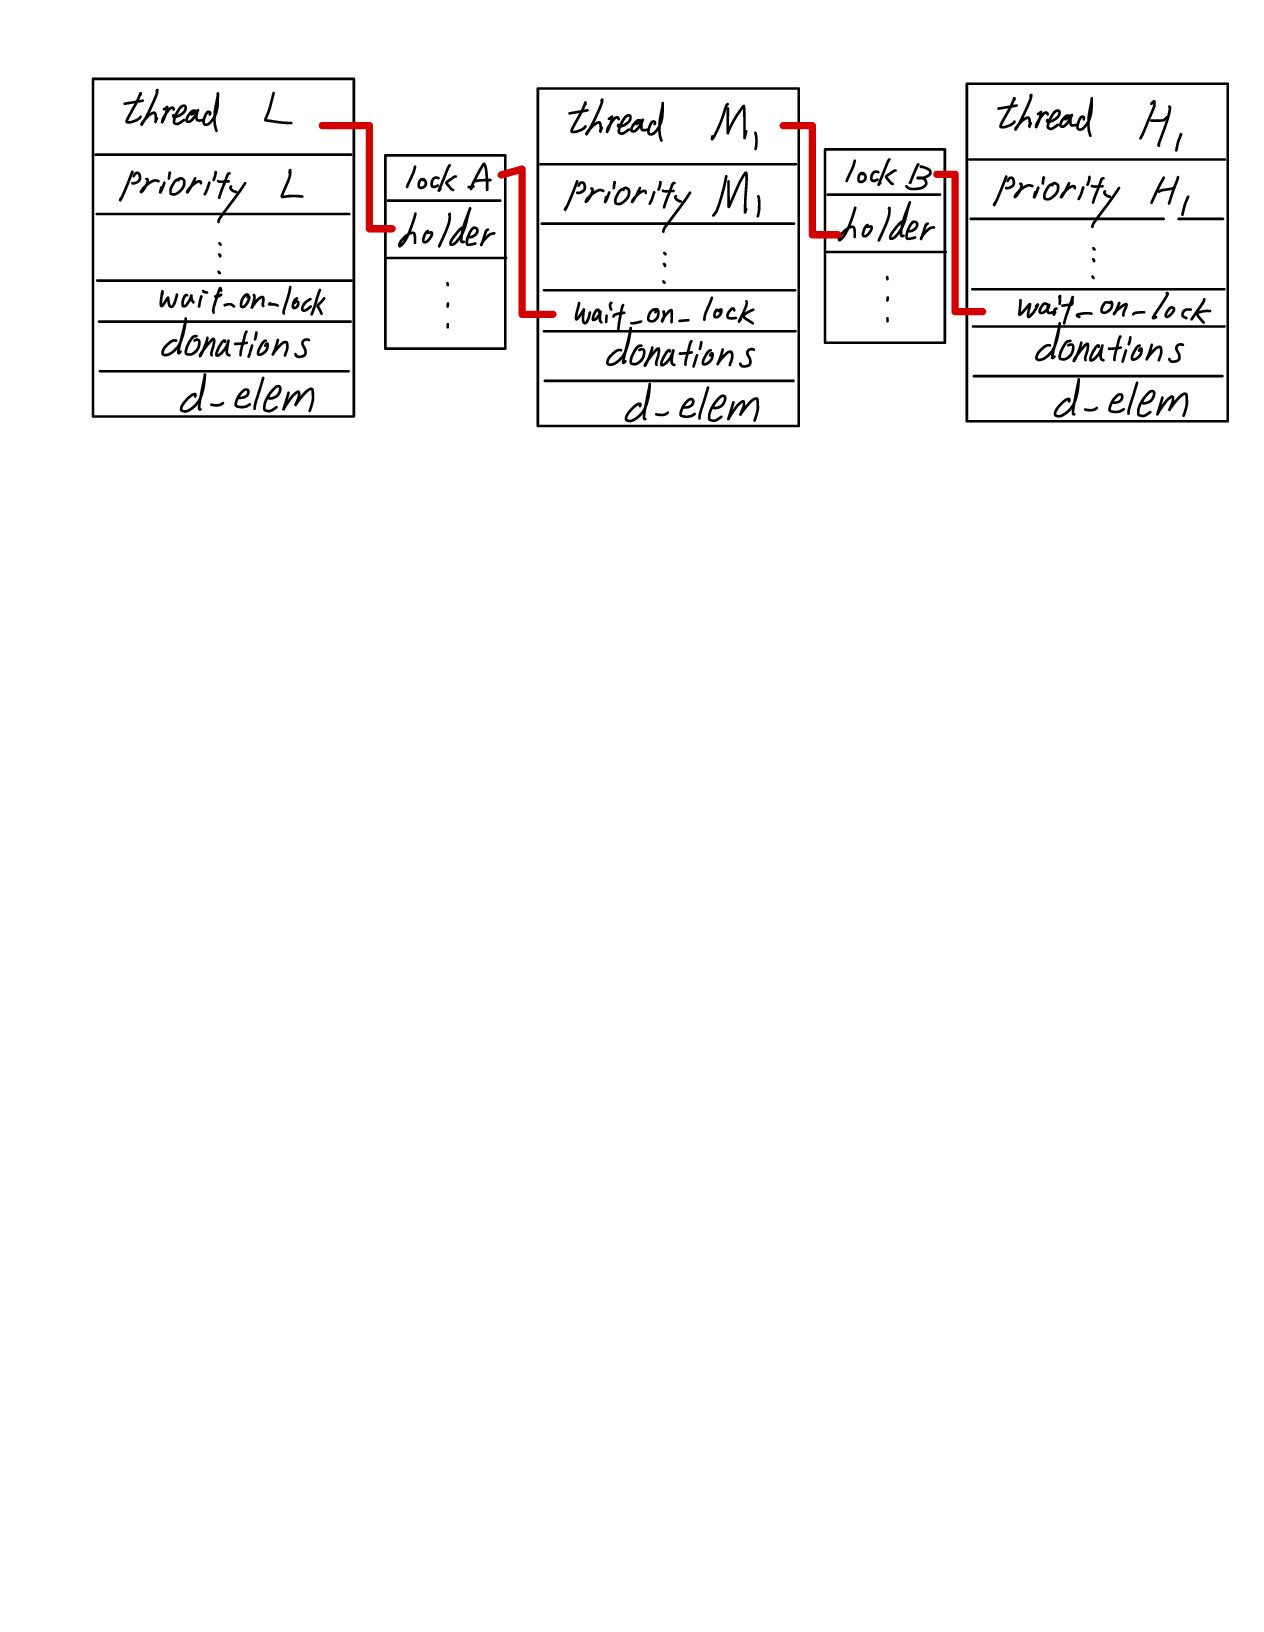 thread L
priority L
⋮
wait_on_lock
donations
d_elem
lock A
holder
⋮
thread M1
priority M1
⋮
wait_on_lock
donations
d_elem
lock B
holder
⋮
thread H1
priority H1
⋮
wait_on_lock
donations
d_elem